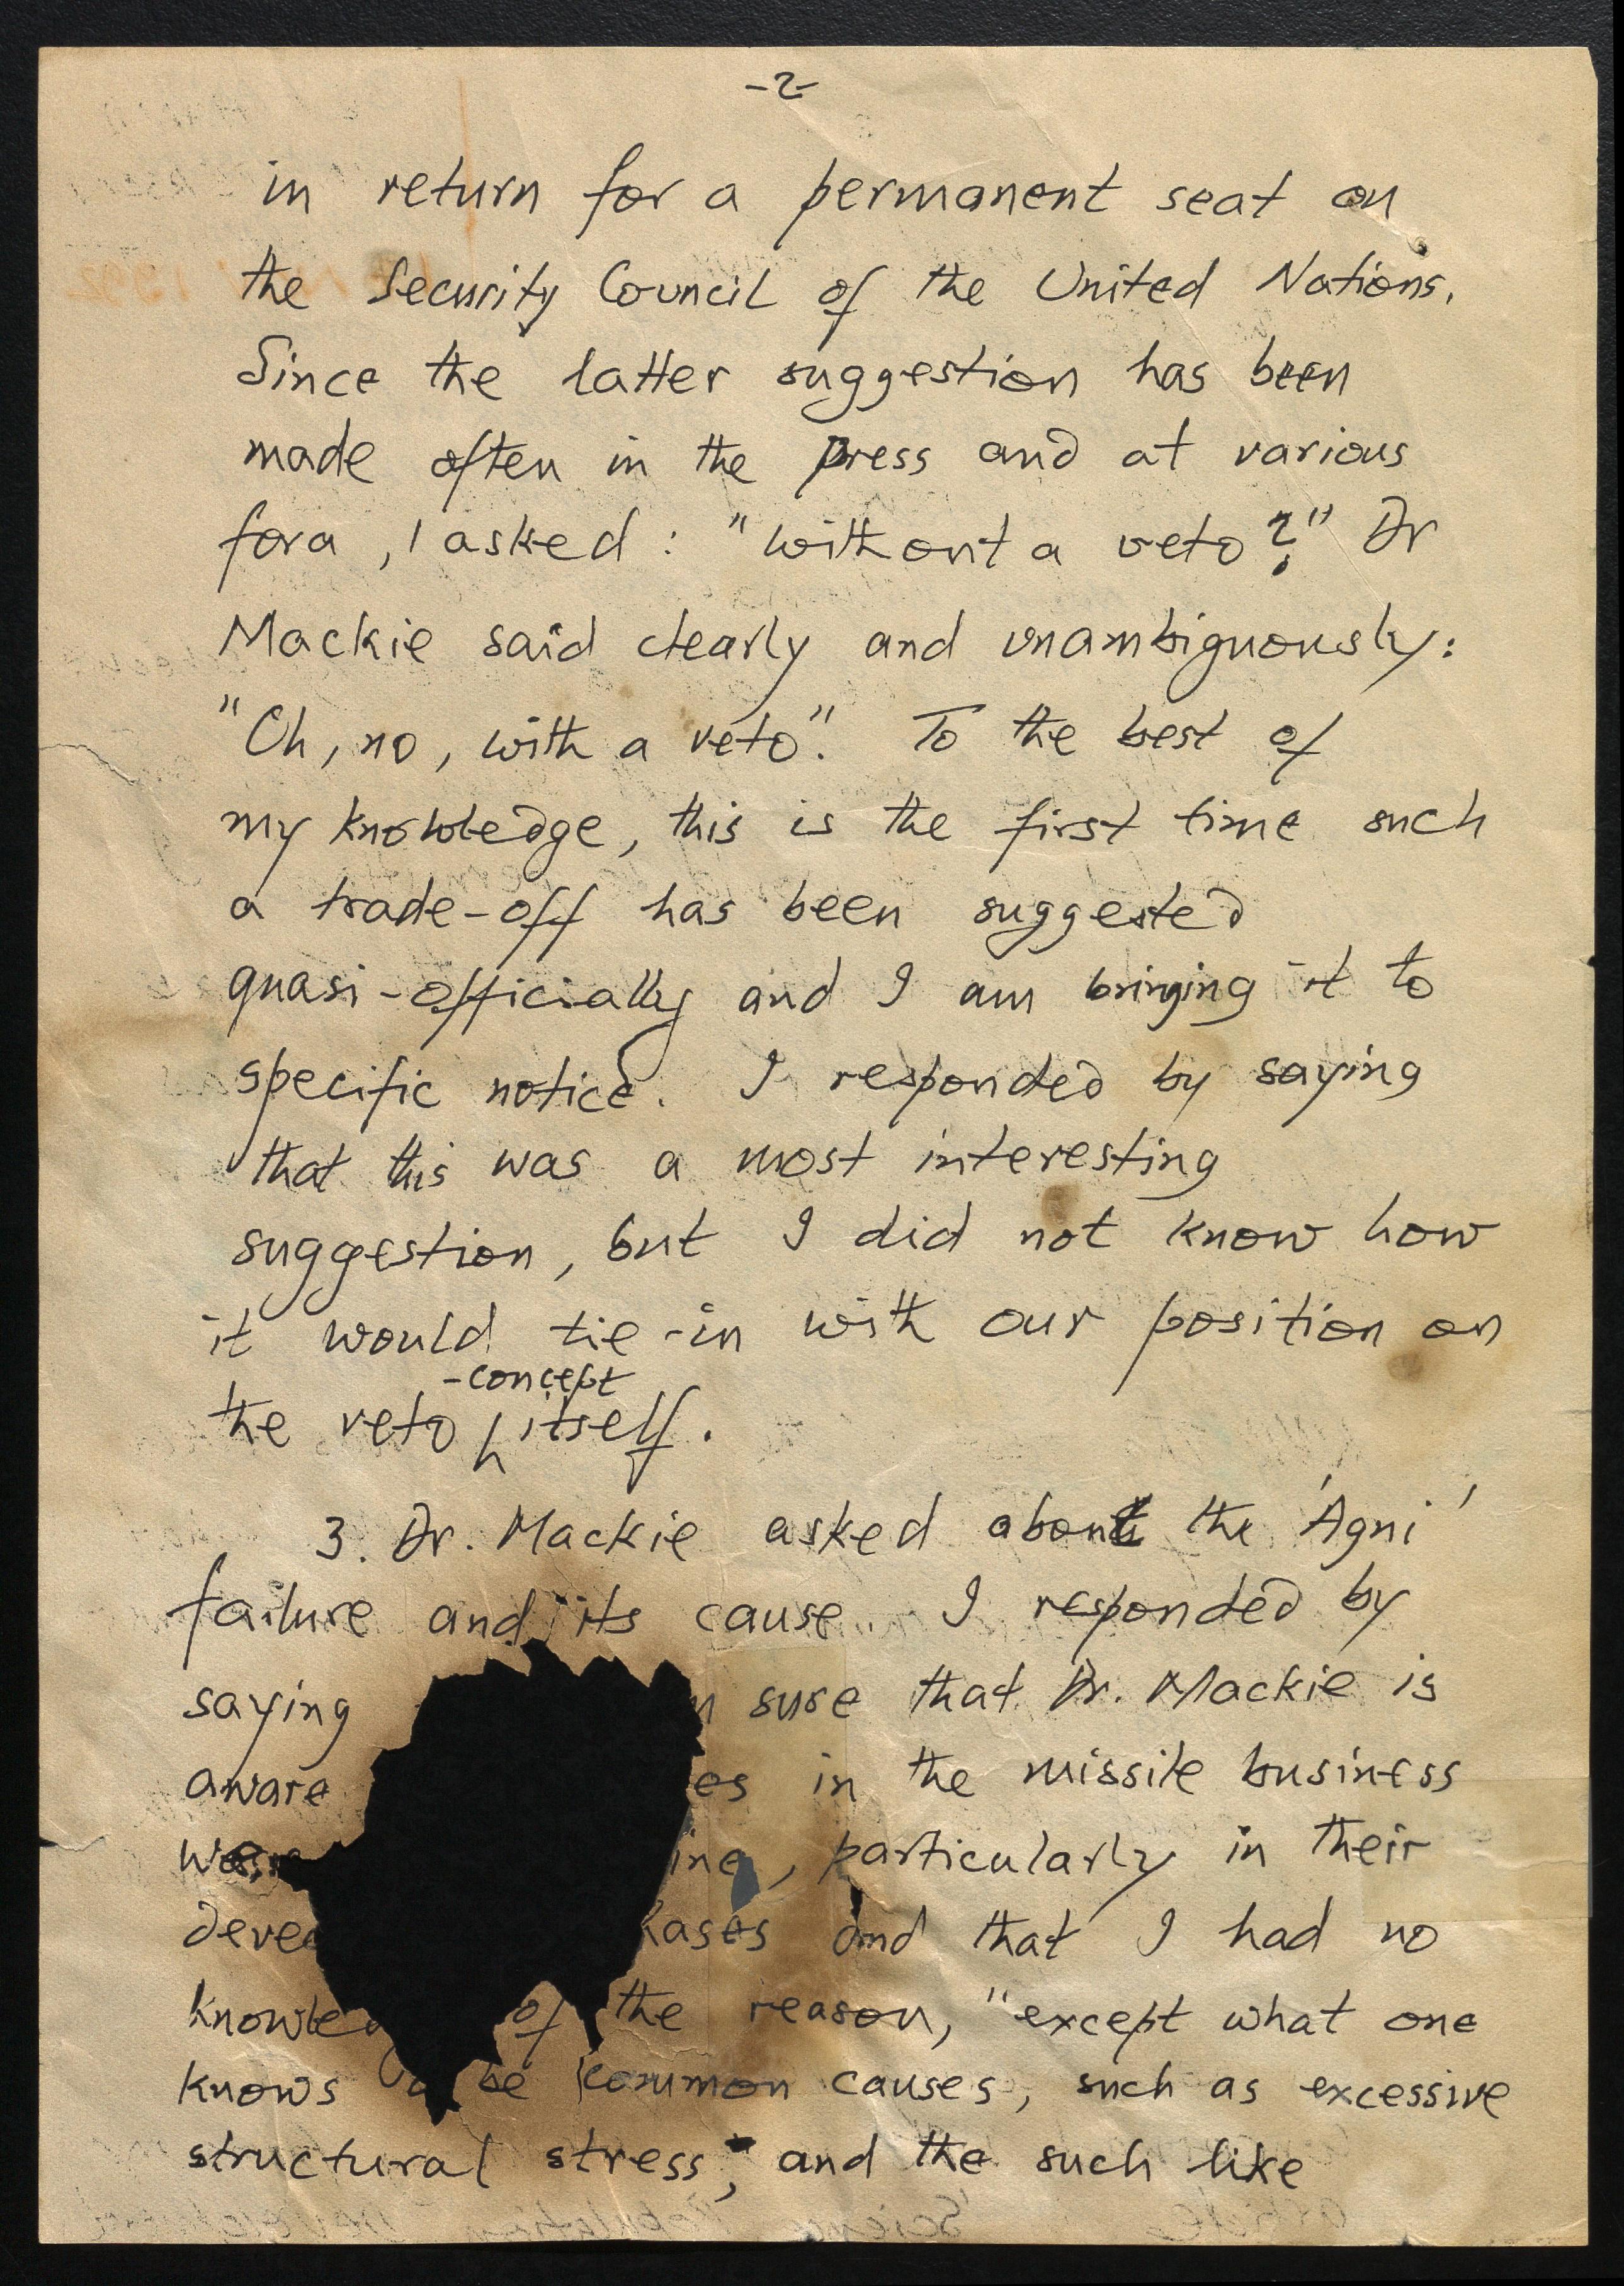 -2-
in return for a permanent seat on
the Security Council of the United Nations.
Since the latter suggestion has been
made often in the press and at various
fora, I asked: "without a veto?" Dr
Mackie said clearly and unambiguously:
"Oh, no, with a veto". To the best of
my knowledge, this is the first time such
a trade-off has been suggested
quasi-officially and I am bringing it to
specific notice. I responded by saying
that this was a most interesting
suggestion, but I did not know how
it would tie-in with our position on
-concept
the veto itself.
3. Dr. Mackie asked about the 'Agni'
failure and its cause. I responded by
saying sure that Dr. Mackie is
aware es in the missile business
were ine, particularly in their
deve hases and that I had no
knowled of the reason, "except what one
knows be common causes, such as excessive
structural stress", and the such like